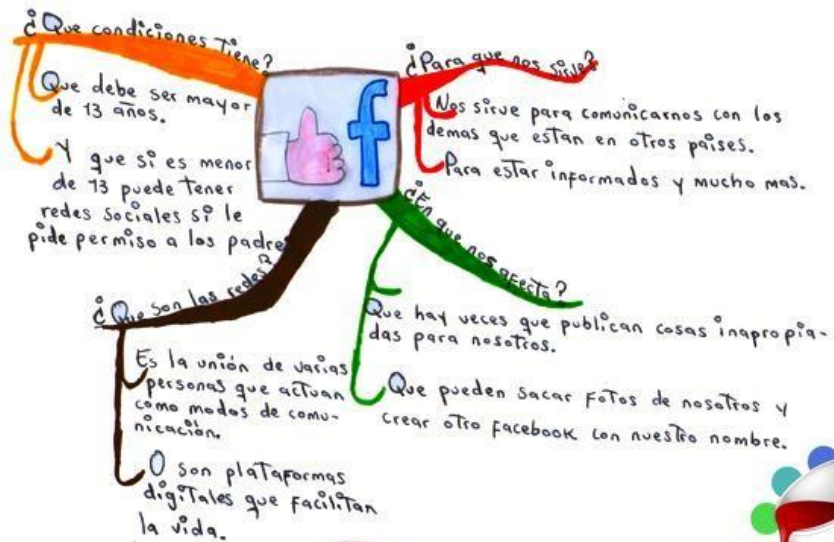 ¿Que condiciones Tiene?
Que debe ser mayor
de 13 años.
Y que si es menor
de 13 puede tener
redes sociales si le
pide permiso a los padre
¿Para que nos sirve?
Nos sirve para comunicarnos con los
demas que estan en otros paises.
Para estar informados y mucho mas.
f
¿En que nos afecta?
Que hay veces que publican cosas inapropia-
das para nosotros.
Que pueden sacar fotos de nosotros y
crear otro facebook con nuestro nombre.
¿Que son las redes?
Es la unión de varias
personas que actuan
como modos de comu-
nicación.
O son plataformas
digitales que facilitan
la vida.